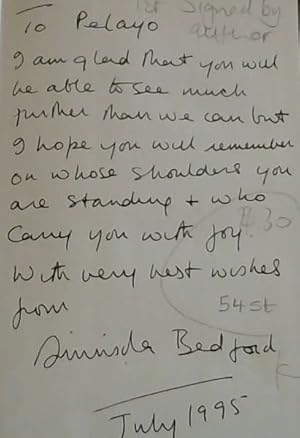 1st Signed by
author
To Pelayo
I am glad that you will
be able to see much
further than we can but
I hope you will remember
on whose shoulders you
are standing + who
carry you with joy.
$30
With very best wishes
from
54 st
Simisola Bedford
July 1995